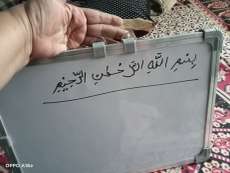 بِسْمِ اللَّهِ الرَّحْمٰنِ الرَّحِيْمِ
OPPO A16e